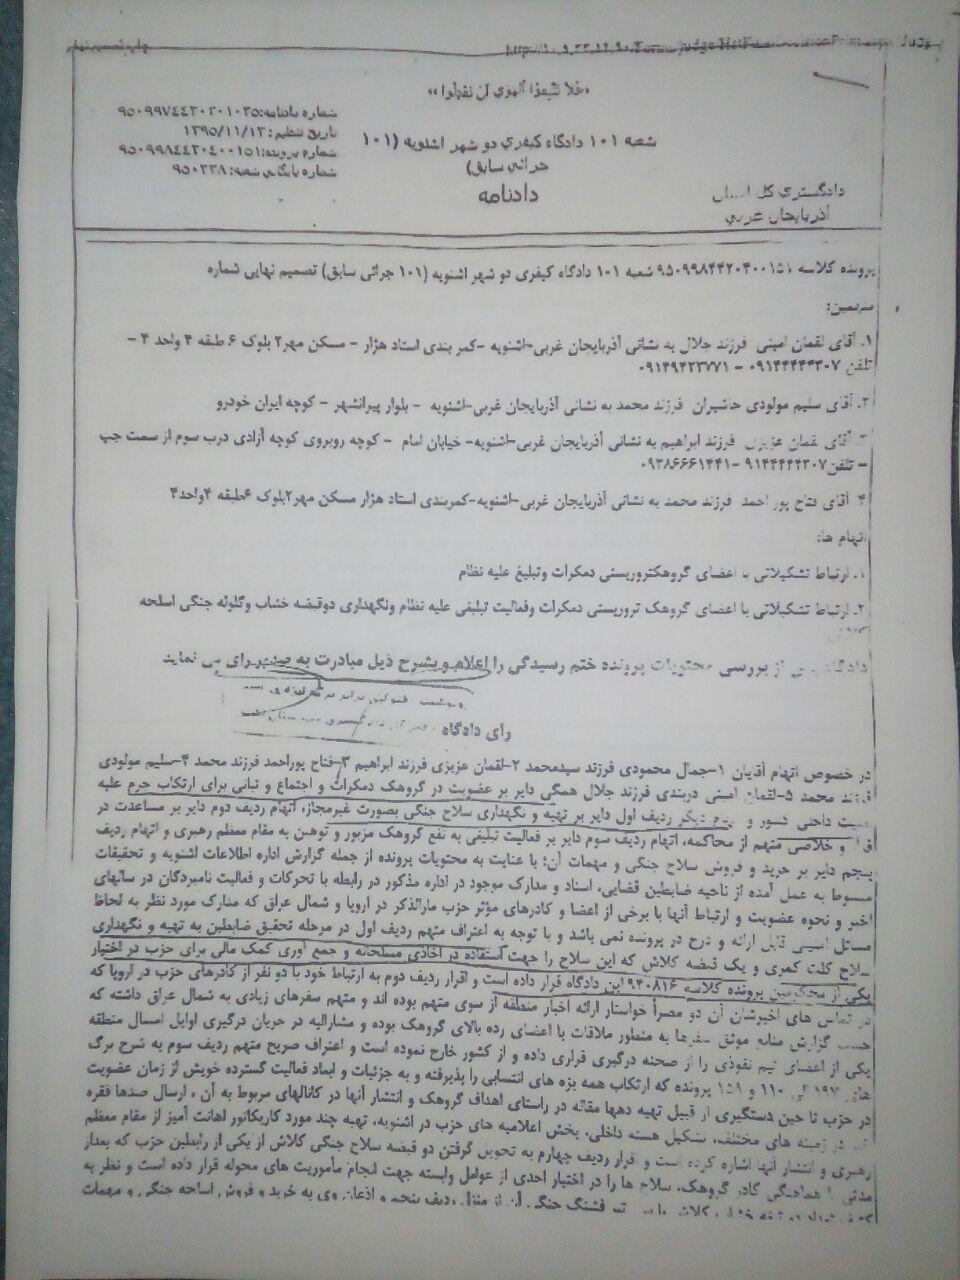 «فلا تتبعوا الهوی أن تعدلوا»
شماره دادنامه: ۹۵۰۹۹۷۴۴۲۰۲۰۱۰۳۵
تاریخ تنظیم: ۱۳۹۵/۱۱/۱۳
شماره پرونده: ۹۵۰۹۹۸۴۴۲۰۴۰۰۱۵۱
شماره بایگانی شعبه: ۹۵۰۳۳۸
شعبه ۱۰۱ دادگاه کیفری دو شهر اشنویه (۱۰۱
جزائی سابق)
دادنامه
دادگستری کل استان
آذربایجان غربی
پرونده کلاسه ۹۵۰۹۹۸۴۴۲۰۴۰۰۱۵۱ شعبه ۱۰۱ دادگاه کیفری دو شهر اشنویه (۱۰۱ جزائی سابق) تصمیم نهایی شماره
متهمین:
۱. آقای لقمان امینی فرزند جلال به نشانی آذربایجان غربی-اشنویه -کمر بندی استاد هزار - مسکن مهر۲ بلوک ۶ طبقه ۴ واحد ۴ -
تلفن ۰۹۱۴۴۴۴۴۳۰۷ - ۰۹۱۴۹۴۲۳۷۷۱
۲. آقای سلیم مولودی فرزند محمد به نشانی آذربایجان غربی-اشنویه - بلوار پیرانشهر - کوچه ایران خودرو
۳. آقای لقمان عزیزی فرزند ابراهیم به نشانی آذربایجان غربی-اشنویه- خیابان امام - کوچه روبروی کوچه آزادی درب سوم از سمت چپ
- تلفن۹۱۴۴۴۴۴۳۰۷ -۰۹۳۸۶۶۶۱۴۴۱
۴. آقای فتاح پور احمد فرزند محمد به نشانی آذربایجان غربی-اشنویه-کمربندی استاد هزار مسکن مهر۲بلوک ۶طبقه ۴واحد۴
اتهام ها:
۱. ارتباط تشکیلاتی با اعضای گروهکتروریستی دمکرات وتبلیغ علیه نظام
۲. ارتباط تشکیلاتی با اعضای گروهک تروریستی دمکرات وفعالیت تبلیغی علیه نظام ونگهداری دوقبضه خشاب وگلوله جنگی اسلحه
دادگاه پس از بررسی محتویات پرونده ختم رسیدگی را اعلام و بشرح ذیل مبادرت به صدور رای می نماید
رای دادگاه
در خصوص اتهام آقایان ۱-جمال محمودی فرزند سیدمحمد ۲-لقمان عزیزی فرزند ابراهیم ۳-فتاح پوراحمد فرزند محمد ۴-سلیم مولودی
فرزند محمد ۵-لقمان امینی دربندی فرزند جلال همگی دایر بر عضویت در گروهک دمکرات و اجتماع و تبانی برای ارتکاب جرم علیه
امنیت داخلی کشور و دیگر ردیف اول دایر بر تهیه و نگهداری سلاح جنگی بصورت غیرمجاز، اتهام ردیف دوم دایر بر مساعدت در
فرار و خلاصی متهم از محاکمه، اتهام ردیف سوم دایر بر فعالیت تبلیغی به نفع گروهک مزبور و توهین به مقام معظم رهبری و اتهام ردیف
پنجم دایر بر خرید و فروش سلاح جنگی و مهمات آن؛ با عنایت به محتویات پرونده از جمله گزارش اداره اطلاعات اشنویه و تحقیقات
مبسوط به عمل آمده از ناحیه ضابطین قضایی، اسناد و مدارک موجود در اداره مذکور در رابطه با تحرکات و فعالیت نامبردگان در سالهای
اخیر و نحوه عضویت و ارتباط آنها با برخی از اعضا و کادرهای مؤثر حزب مارالذکر در اروپا و شمال عراق که مدارک مورد نظر به لحاظ
مسائل امنیتی قابل ارائه و درج در پرونده نمی باشد و با توجه به اعتراف متهم ردیف اول در مرحله تحقیق ضابطین به تهیه و نگهداری
سلاح کلت کمری و یک قبضه کلاش که این سلاح را جهت استفاده در اخاذی مسلحانه و جمع آوری کمک مالی برای حزب در اختیار
یکی از محکومین پرونده کلاسه ۹۴۰۸۱۶ این دادگاه قرار داده است و اقرار ردیف دوم به ارتباط خود با دو نفر از کادرهای حزب در اروپا که
در تماس های اخیرشان آن دو مصراً خواستار ارائه اخبار منطقه از سوی متهم بوده اند و متهم سفرهای زیادی به شمال عراق داشته که
حسب گزارش منابع موثق سفرها به منظور ملاقات با اعضای رده بالای گروهک بوده و مشارالیه در جریان درگیری اوایل امسال منطقه
یکی از اعضای تیم نفوذی را از صحنه درگیری فراری داده و از کشور خارج نموده است و اعتراف صریح متهم ردیف سوم به شرح برگ
های ۹۷ الی ۱۱۰ و ۱۵۸ پرونده که ارتکاب همه بزه های انتسابی را پذیرفته و به جزئیات و ابعاد فعالیت گسترده خویش از زمان عضویت
در حزب تا حین دستگیری از قبیل تهیه دهها مقاله در راستای اهداف گروهک و انتشار آنها در کانالهای مربوط به آن ، ارسال صدها فقره
در زمینه های مختلف، تشکیل هسته داخلی، پخش اعلامیه های حزب در اشنویه، تهیه چند مورد کاریکاتور اهانت آمیز از مقام معظم
رهبری و انتشار آنها اشاره کرده است و اقرار ردیف چهارم به تحویل گرفتن دو قبضه سلاح جنگی کلاش از یکی از رابطین حزب که بعداز
مدتی با هماهنگی کادر گروهک، سلاح ها را در اختیار احدی از عوامل وابسته جهت انجام مأموریت های محوله قرار داده است و نظر به
فشنگ جنگی از منزل ردیف پنجم و اذعان وی به خرید و فروش اسلحه جنگی و مهمات